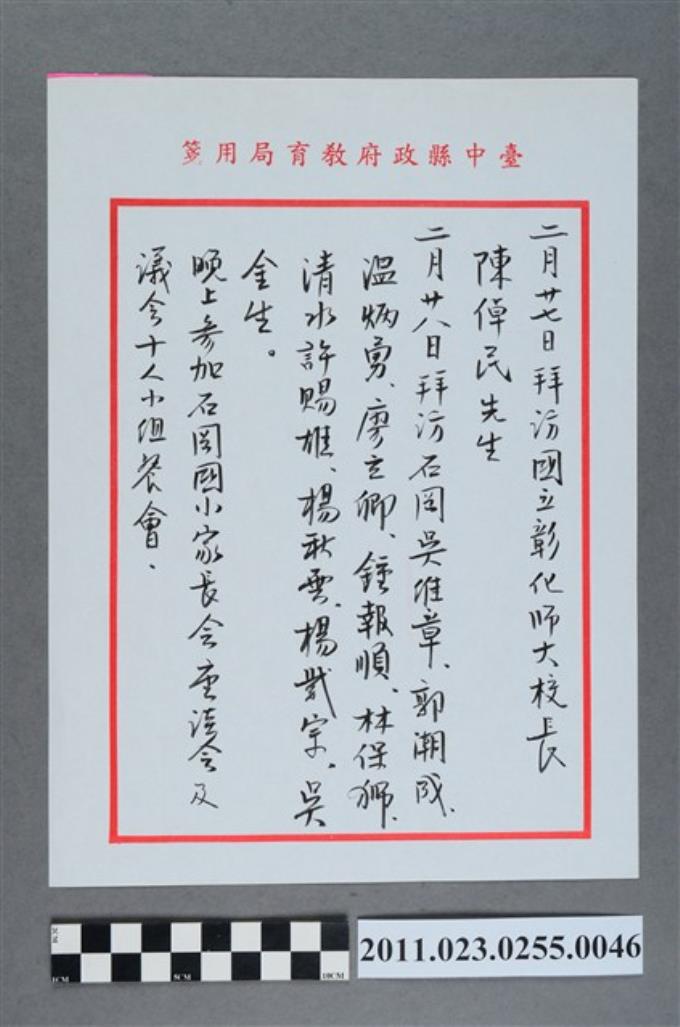 臺中縣政府教育局用箋
二月廿七日拜訪國立彰化師大校長
陳倬民先生
二月廿八日拜訪石岡吳維章、郭潮成、
溫炳勇、廖立卿、鍾報順、林保獅、
清水許賜雄、楊秋雲、楊戴宗、吳
金生。
晚上參加石岡國小家長会座談会及
議会十人小組餐會、
1CM 5CM 10CM
2011.023.0255.0046